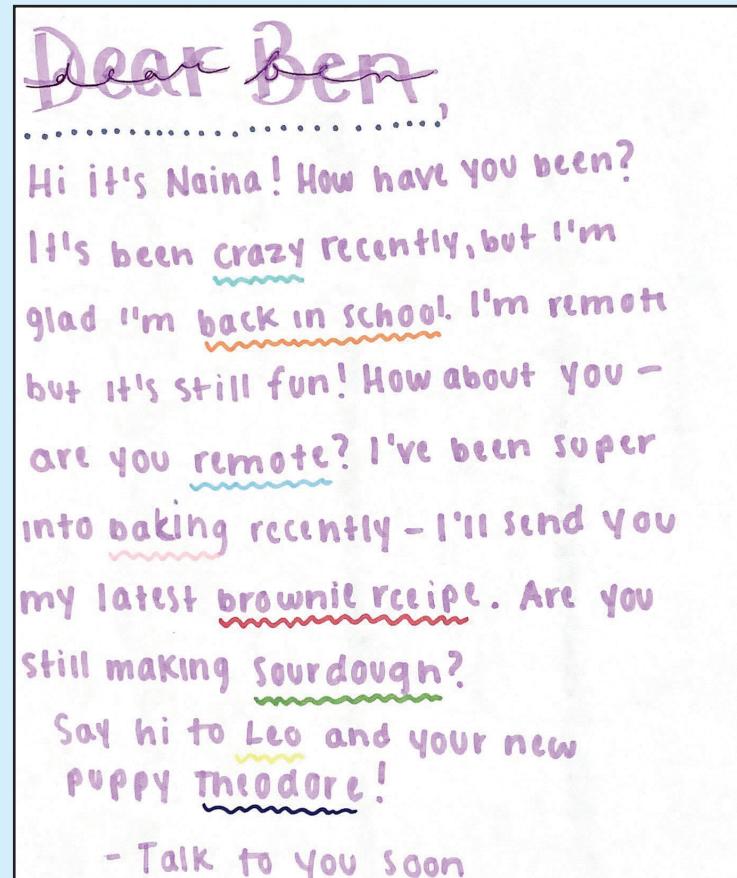 Dear Ben,
dear ben
Hi it's Naina! How have you been?
It's been crazy recently, but I'm
glad I'm back in school. I'm remote
but it's still fun! How about you –
are you remote? I've been super
into baking recently – I'll send you
my latest brownie rceipe. Are you
still making sourdough?
Say hi to Leo and your new
puppy Theodore!
- Talk to you soon